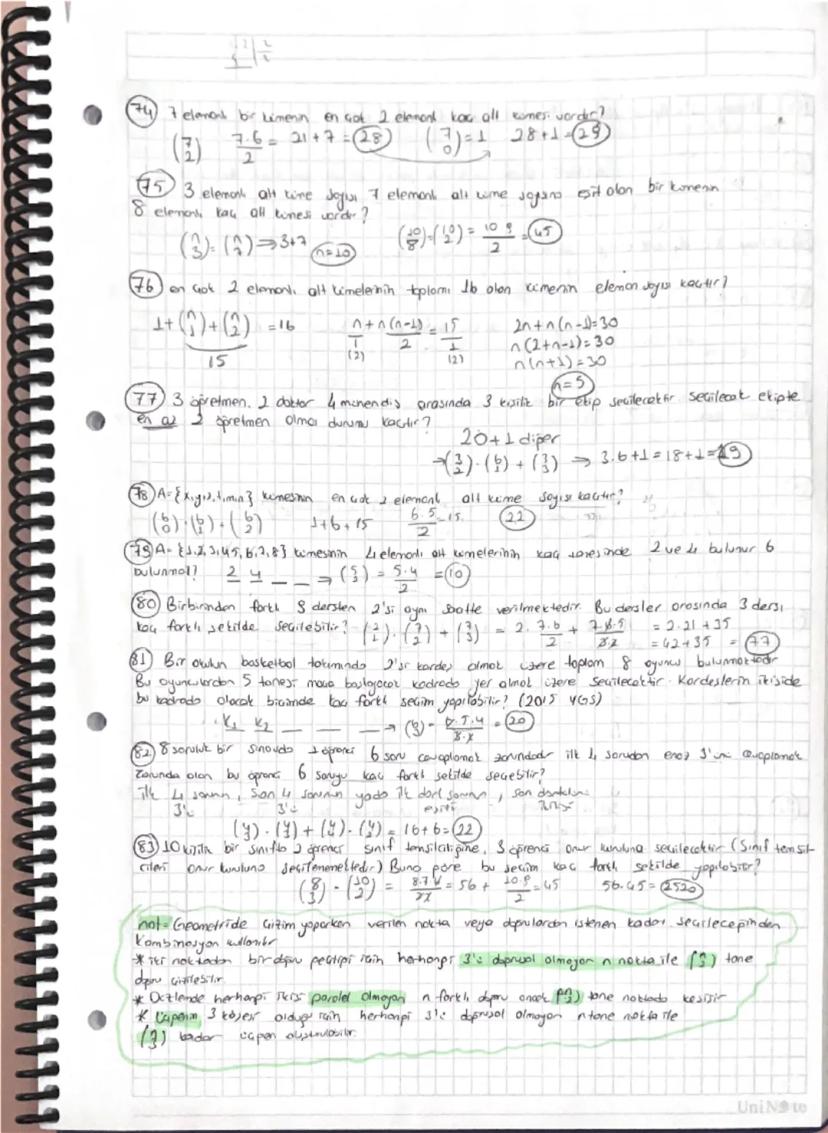 74) 7 elemanlı bir kümenin en çok 2 elemanlı kaç alt kümesi vardır?
(7 2) 7.6/2 = 21+7 = 28 (7 0) = 1 28+1 = 29
75) 3 elemanlı alt küme sayısı 7 elemanlı alt küme sayısına eşit olan bir kümenin
8 elemanlı kaç alt kümesi vardır?
(n 3) = (n 7) ⇒ 3+7 n=10 (10 8) = (10 2) = 10.9/2 = 45
76) en çok 2 elemanlı alt kümelerinin toplamı 16 olan kümenin eleman sayısı kaçtır?
1+(n 1)+(n 2) = 16 n/1 + n(n-1)/2 = 15/1 2n+n(n-1)=30
15 (2) (2) n(2+n-1)=30
n(n+1)=30
n=5
77) 3 öğretmen, 2 doktor 4 mühendis arasında 3 kişilik bir ekip seçilecektir seçilecek ekipte
en az 2 öğretmen olma durumu kaçtır?
20+1 diğer
→(3 2).(6 1)+(3 3) ⇒ 3.6+1=18+1=19
78) A={x,y,z,l,m,n} kümesinin en çok 2 elemanlı alt küme sayısı kaçtır?
(6 0).(6 1)+(6 2) 1+6+15 6.5/2=15 22
79) A={1,2,3,4,5,6,7,8} kümesinin 4 elemanlı alt kümelerinin kaç tanesinde 2 ve 4 bulunur 6
bulunmaz? 2 4 _ _ ⇒ (5 2) = 5.4/2 = 10
80) Birbirinden farklı 9 dersten 2'si aynı saatte verilmektedir. Bu dersler arasında 3 dersi
kaç farklı şekilde seçilebilir? (2 1).(7 2)+(7 3) = 2.7.6/2 + 7.6.5/3.2 = 2.21+35
=42+35 = 77
81) Bir okulun basketbol takımında 2'si kardeş olmak üzere toplam 8 oyuncu bulunmaktadır
Bu oyunculardan 5 tanesi maça başlayacak kadroda yer almak üzere seçilecektir. Kardeşlerin ikiside
bu kadroda olacak biçimde kaç farklı seçim yapılabilir? (2015 YGS)
K1 K2 _ _ _ → (6 3) = 6.5.4/3.2 = 20
82) 8 soruluk bir sınavda 1 öğrenci 6 soru cevaplamak zorundadır ilk 4 sorudan en az 3'ünü cevaplamak
zorunda olan bu öğrenci 6 soruyu kaç farklı şekilde seçebilir?
ilk 4 sorunun, son 4 sorunun yada ilk dört sorunun, son dörtlünün
3'ü 3'ü hepsi ikisi
(4 3).(4 3)+(4 4).(4 2) = 16+6=22
83) 10 kişilik bir sınıfta 2 öğrenci sınıf temsilciliğine, 3 öğrenci onur kuruluna seçilecektir (Sınıf temsil-
cileri onur kuruluna seçilememektedir) Buna göre bu seçim kaç farklı şekilde yapılabilir?
(8 3).(10 2) = 8.7.6/3.2 = 56 + 10.9/2 = 45 56.45 = 2520
not= Geometride çizim yaparken verilen nokta veya doğrulardan istenen kadar seçileceğinden
Kombinasyon kullanılır
* iki noktadan bir doğru geçtiği için herhangi 3'ü doğrusal olmayan n nokta ile (n 2) tane
doğru çizilebilir.
* Düzlemde herhangi ikisi paralel olmayan n farklı doğru ancak (n 2) tane noktada kesişir
* Üçgenin 3 köşesi olduğu için herhangi 3'ü doğrusal olmayan n tane nokta ile
(n 3) kadar üçgen oluşturulabilir.
UniNote